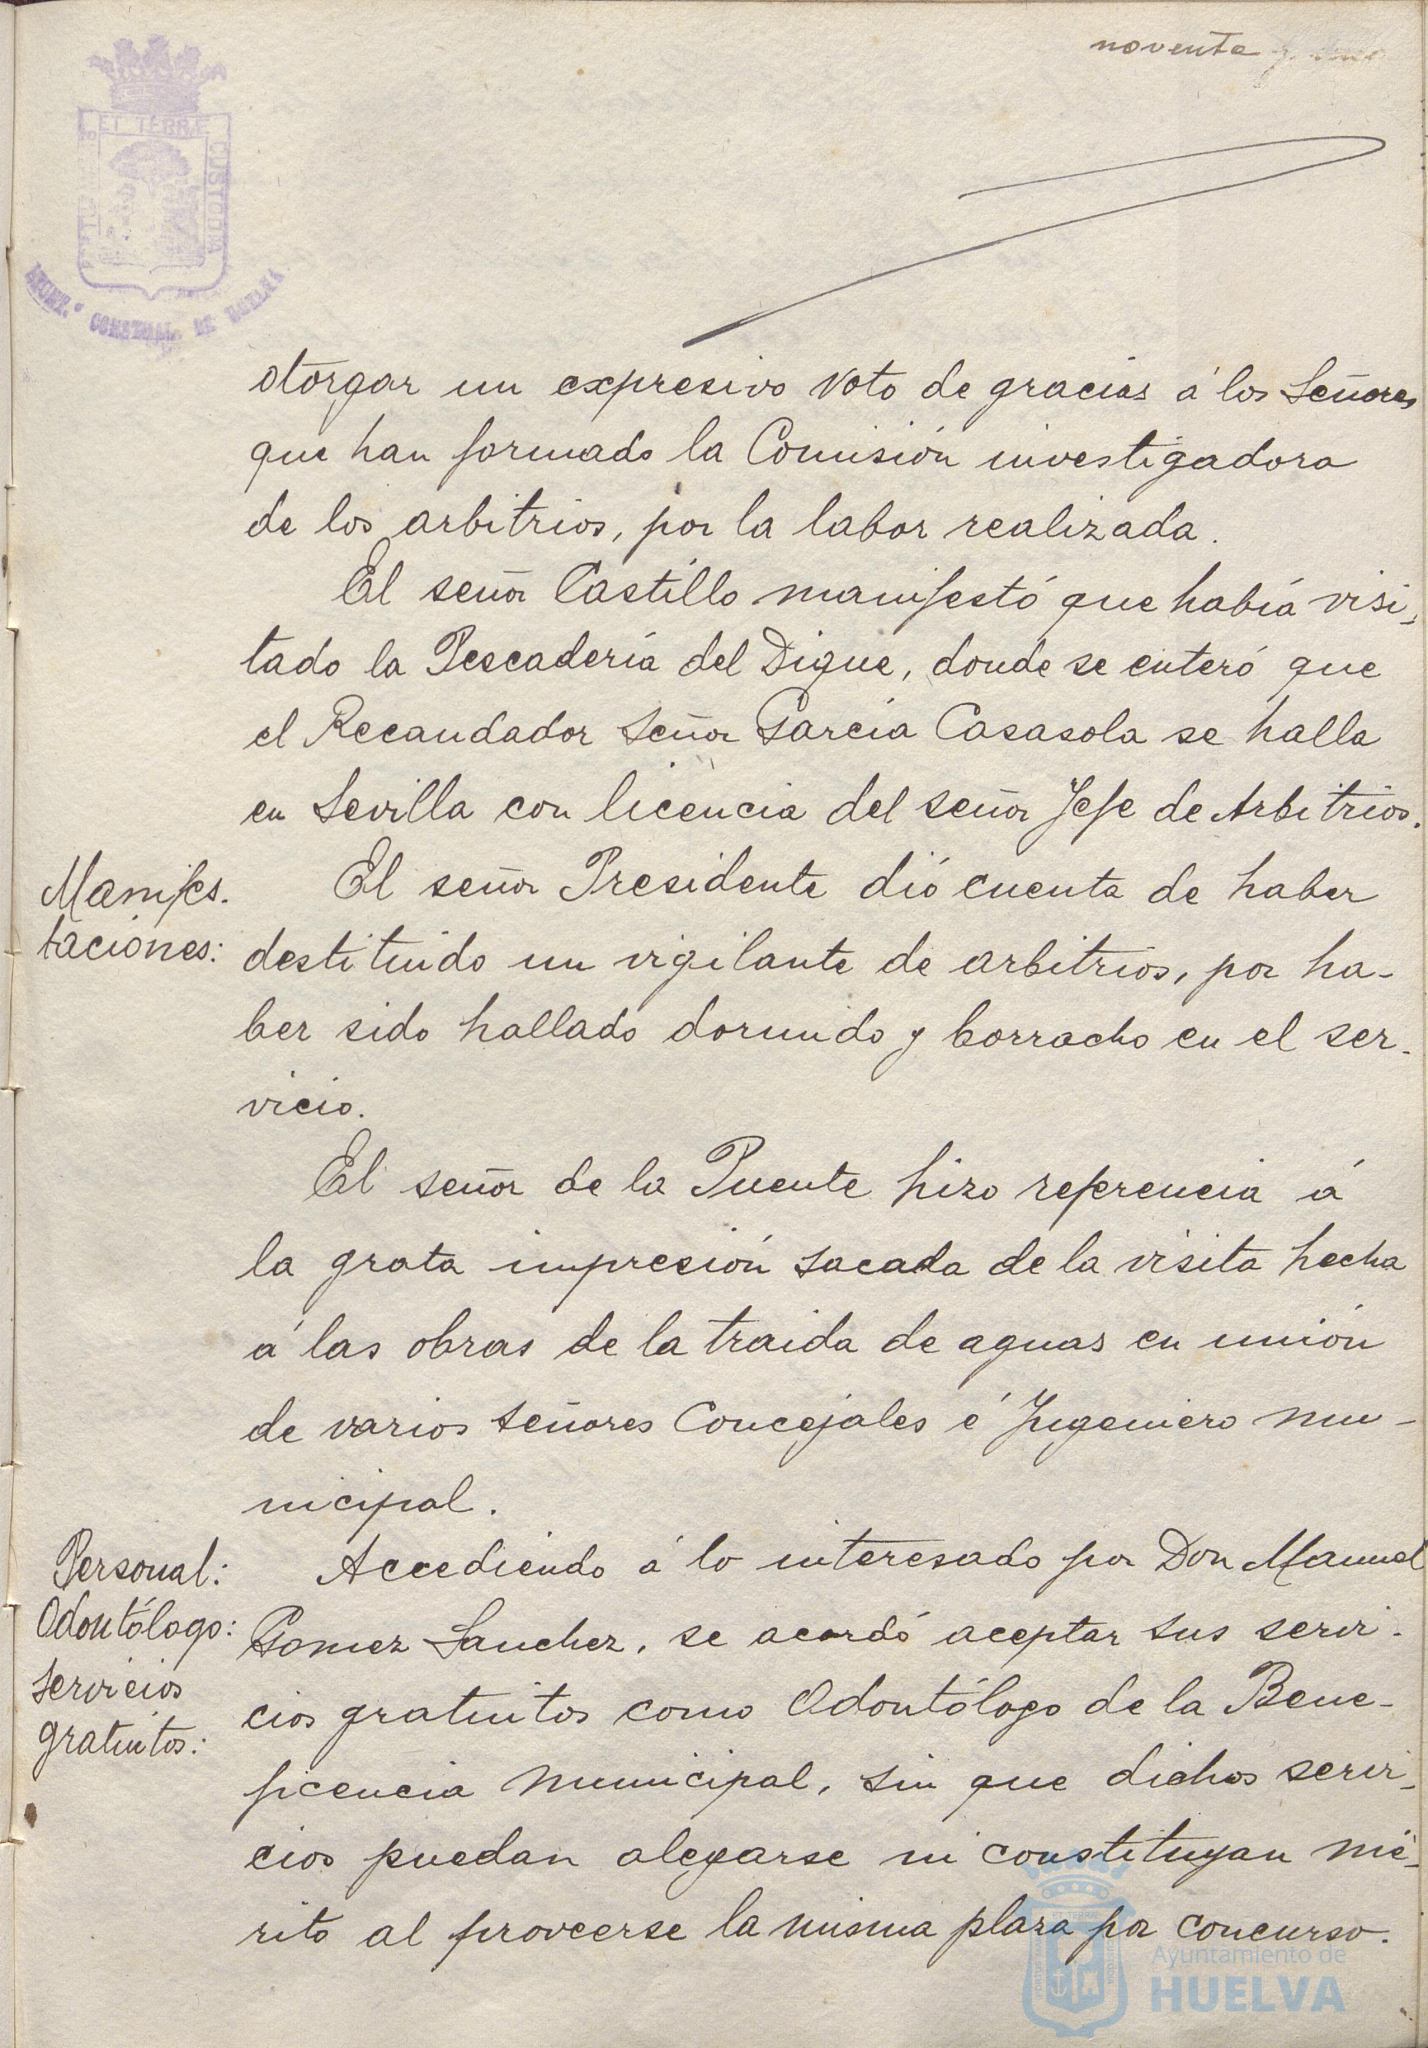 noventa y
ET TERRÆ
CUSTODIA
AYUNT.º CONSTNAL. DE HUELVA
otorgar un expresivo voto de gracias á los Señores
que han formado la Comisión investigadora
de los arbitrios, por la labor realizada.
El señor Castillo manifestó que había visi-
tado la Pescadería del Dique, donde se enteró que
el Recaudador Señor García Casasola se halla
en Sevilla con licencia del señor Jefe de Arbitrios.
Manifes-
taciones:
El señor Presidente dió cuenta de haber
destituido un vigilante de arbitrios, por ha-
ber sido hallado dormido y borracho en el ser-
vicio.
El señor de la Puente hizo referencia á
la grata impresión sacada de la visita hecha
á las obras de la traida de aguas en unión
de varios señores Concejales é Ingeniero mu-
nicipal.
Personal:
Odontólogo:
servicios
gratuitos:
Accediendo á lo interesado por Don Manuel
Gomez Sanchez, se acordó aceptar sus servi-
cios gratuitos como Odontólogo de la Bene-
ficencia municipal, sin que dichos servi-
cios puedan alegarse ni constituyan mé-
rito al proveerse la misma plaza por concurso.
Ayuntamiento de
HUELVA